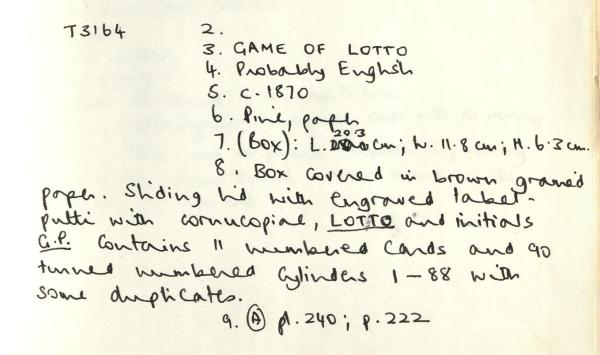 T3164 2.
3. GAME OF LOTTO
4. Probably English
5. c. 1870
6. Pine, paper
7. (Box): L. 20.3 cm; W. 11.8 cm; H. 6.3 cm.
8. Box covered in brown grained
paper. Sliding lid with engraved label -
putti with cornucopiae, LOTTO and initials
G.P. Contains 11 numbered cards and 90
turned numbered cylinders 1-88 with
some duplicates.
9. (A) pl. 240; p. 222